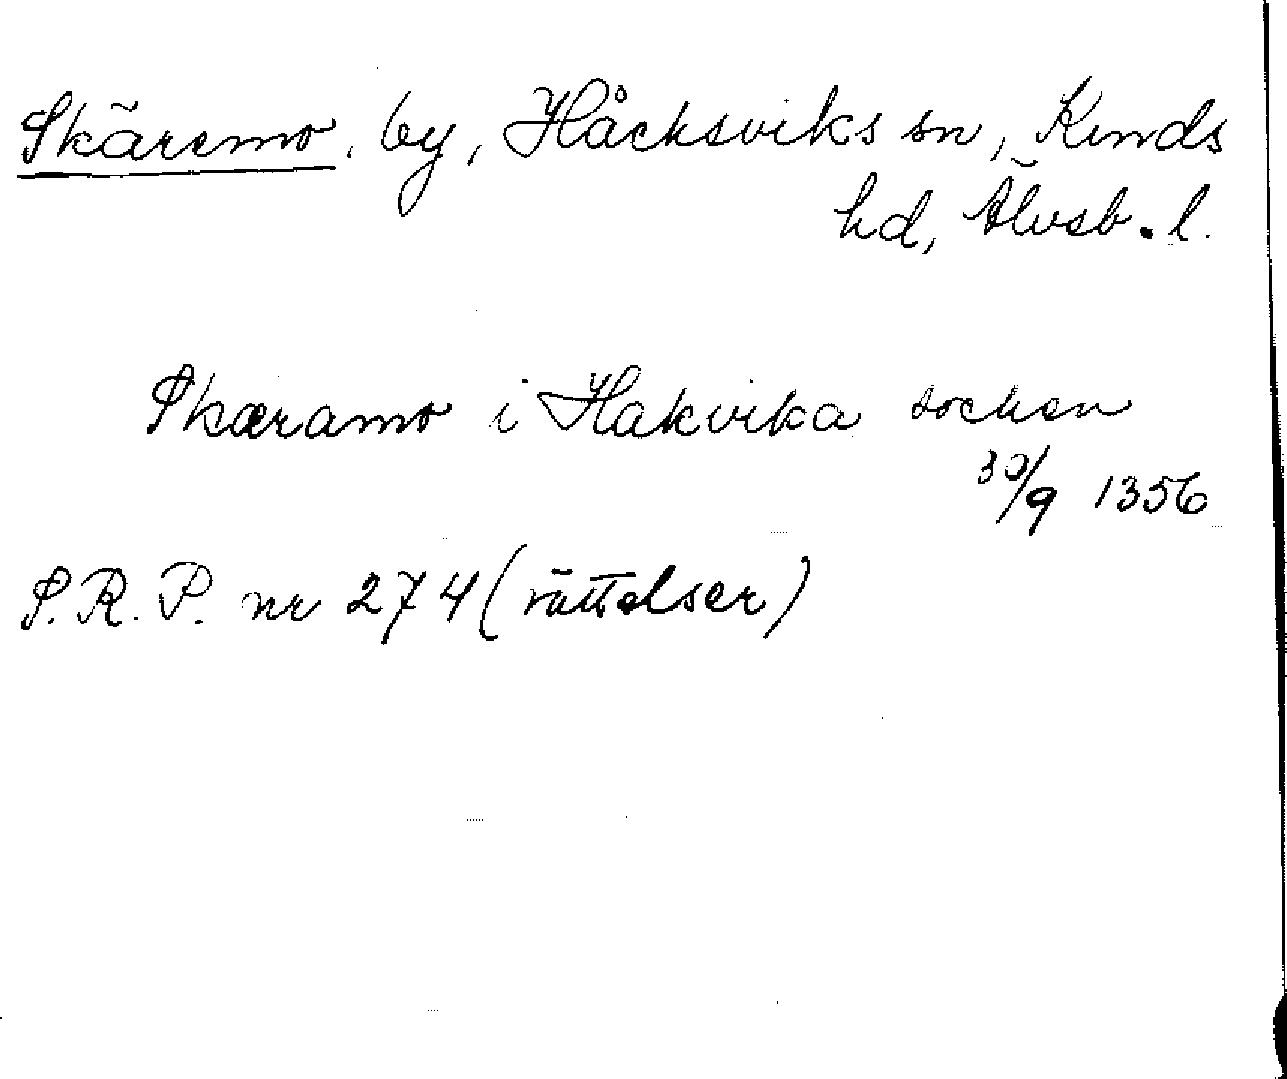 Skäremo, by, Håcksviks sn, Kinds
hd, Älvsb. l.
Skæramo i Hakvika socken
30/9 1356
S.R.P. nr 274 (rättelser)